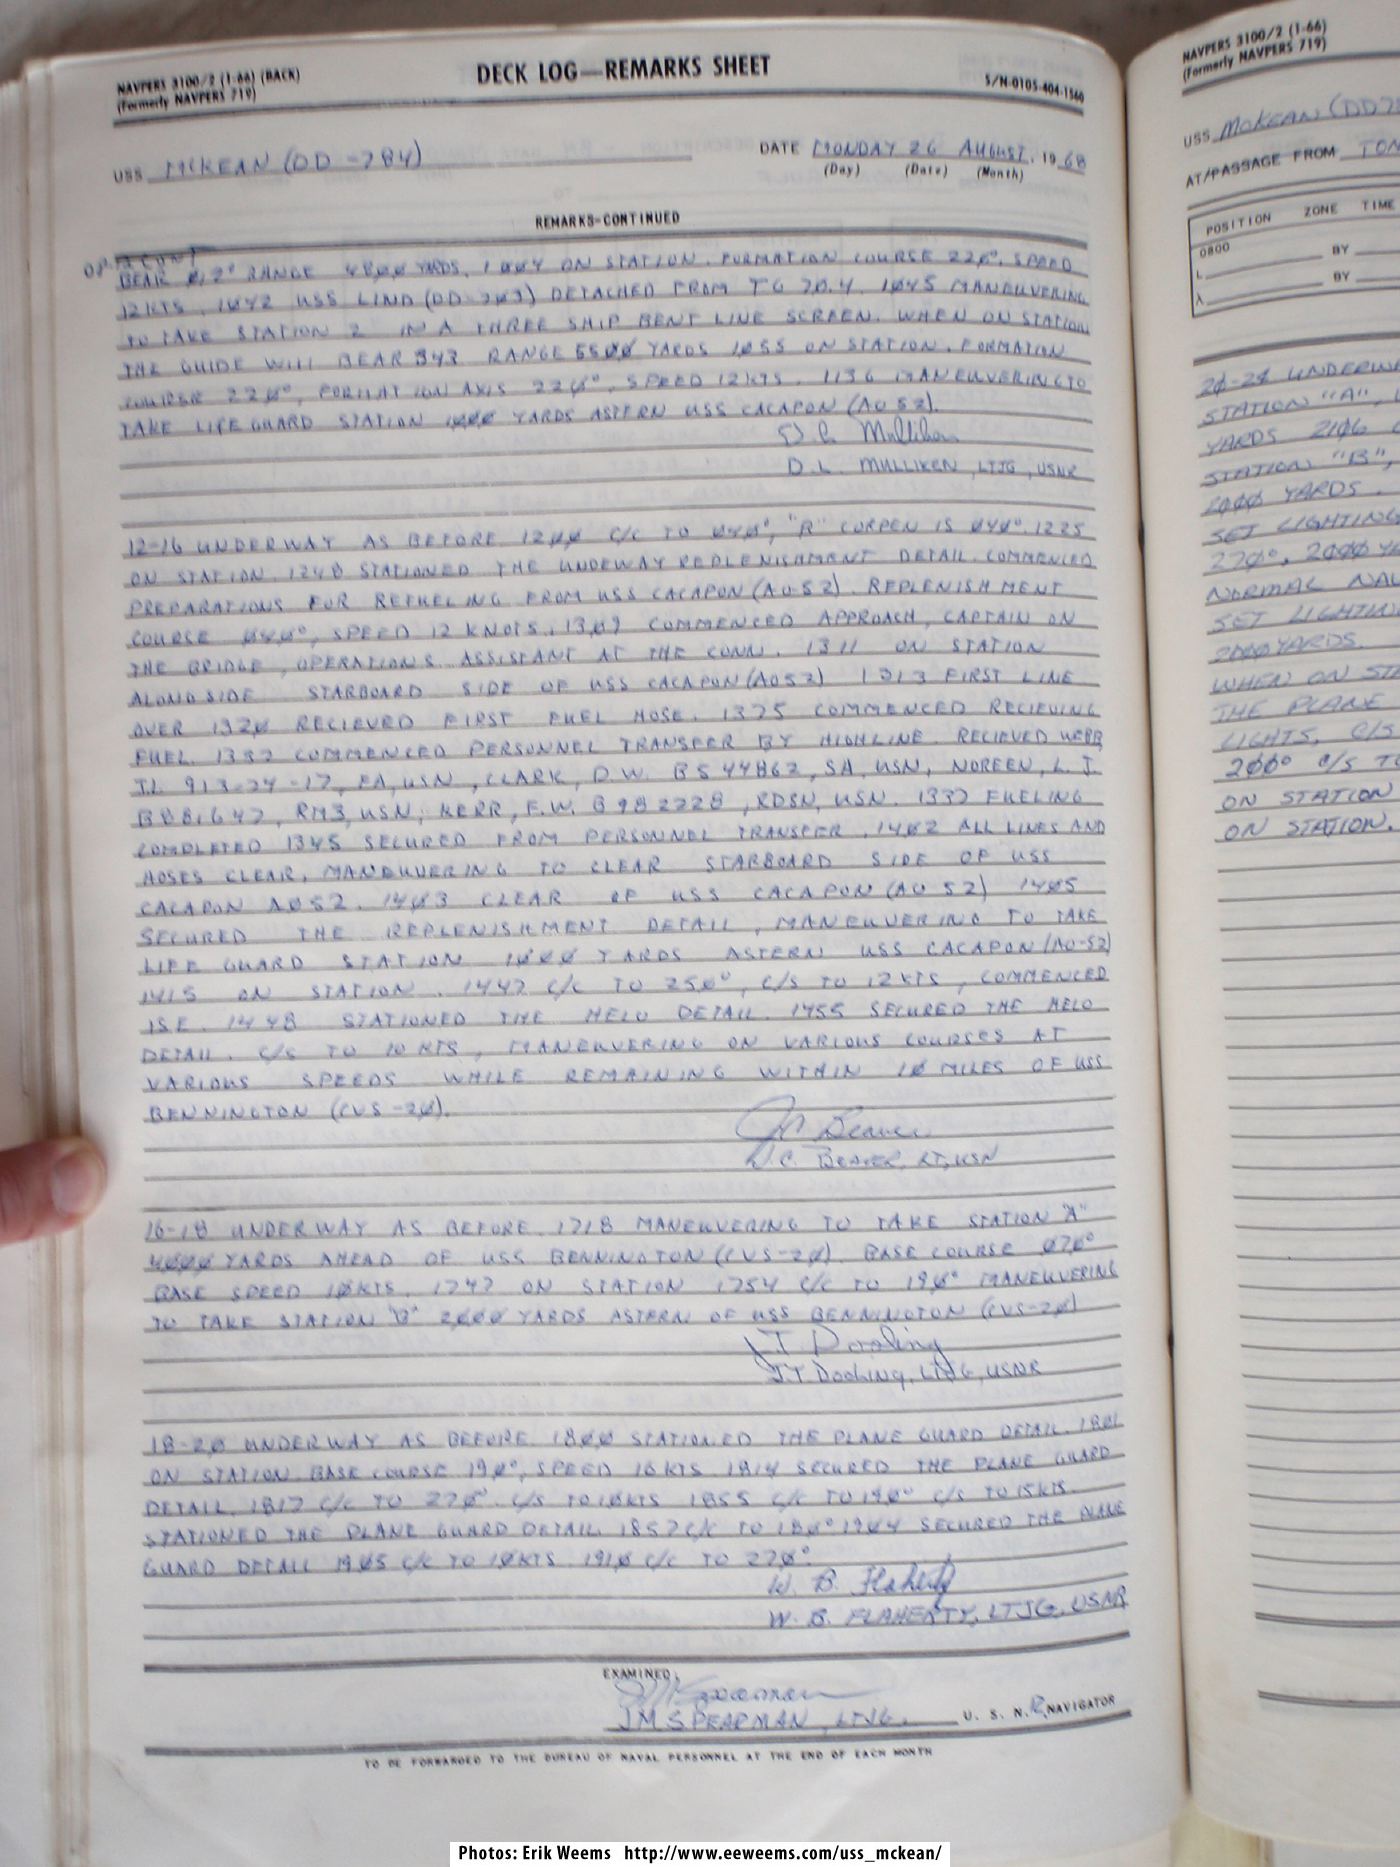 NAVPERS 3100/2 (1-66) (BACK)
(Formerly NAVPERS 719)
DECK LOG—REMARKS SHEET
S/N-0105-404-1560
USS MCKEAN (DD-784)
DATE MONDAY 26 AUGUST, 1968
(Day) (Date) (Month)
REMARKS-CONTINUED
08-12 CONT
BEAR RANGE 4800 YARDS. 1004 ON STATION. FORMATION COURSE 220°, SPEED
12 KTS. 1042 USS LIND (DD-703) DETACHED FROM TG 70.4. 1045 MANEUVERING
TO TAKE STATION 2 IN A THREE SHIP BENT LINE SCREEN. WHEN ON STATION
THE GUIDE WILL BEAR 343 RANGE 5500 YARDS 1055 ON STATION. FORMATION
COURSE 220°, FORMATION AXIS 220°, SPEED 12 KTS. 1136 MANEUVERING TO
TAKE LIFEGUARD STATION 1000 YARDS ASTERN USS CACAPON (AO 52).
D L Mulliken
D. L. MULLIKEN, LTJG, USNR
12-16 UNDERWAY AS BEFORE 1200 C/C TO 040°, "R" CORPEN IS 040°. 1225
ON STATION. 1248 STATIONED THE UNDEWAY REPLENISHMENT DETAIL. COMMENCED
PREPARATIONS FOR REFUELING FROM USS CACAPON (AO-52). REPLENISHMENT
COURSE 040°, SPEED 12 KNOTS. 1309 COMMENCED APPROACH, CAPTAIN ON
THE BRIDGE, OPERATIONS ASSISTANT AT THE CONN. 1311 ON STATION
ALONGSIDE STARBOARD SIDE OF USS CACAPON (AO52) 1313 FIRST LINE
OVER 1320 RECIEVED FIRST FUEL HOSE. 1325 COMMENCED RECIEVING
FUEL. 1332 COMMENCED PERSONNEL TRANSFER BY HIGHLINE. RECIEVED WEBB
913-24-17, FA, USN, CLARK, D.W. B544862, SA, USN, NOREEN, L. J.
B881647, RM3, USN, KERR, F.W. B982228, RDSN, USN. 1337 FUELING
COMPLETED 1345 SECURED FROM PERSONNEL TRANSFER. 1402 ALL LINES AND
HOSES CLEAR, MANEUVERING TO CLEAR STARBOARD SIDE OF USS
CACAPON AO52. 1403 CLEAR OF USS CACAPON (AO 52) 1405
SECURED THE REPLENISHMENT DETAIL, MANEUVERING TO TAKE
LIFE GUARD STATION 1000 YARDS ASTERN USS CACAPON (AO-52)
1415 ON STATION. 1447 C/C TO 250°, C/S TO 12 KTS, COMMENCED
ISE. 1448 STATIONED THE HELO DETAIL. 1455 SECURED THE HELO
DETAIL. C/S TO 10 KTS, MANEUVERING ON VARIOUS COURSES AT
VARIOUS SPEEDS WHILE REMAINING WITHIN 10 MILES OF USS
BENNINGTON (CVS-20).
Beaver
D.C. BEAVER, LT, USN
16-18 UNDERWAY AS BEFORE 1718 MANEUVERING TO TAKE STATION "A"
4000 YARDS AHEAD OF USS BENNINGTON (CVS-20). BASE COURSE 070°
BASE SPEED 10 KTS. 1747 ON STATION 1754 C/C TO 190° MANEUVERING
TO TAKE STATION "B" 2000 YARDS ASTERN OF USS BENNINGTON (CVS-20)
J T Dooling
J.T DOOLING, LTJG, USNR
18-20 UNDERWAY AS BEFORE 1800 STATIONED THE PLANE GUARD DETAIL. 1801
ON STATION BASE COURSE 190°, SPEED 10 KTS 1814 SECURED THE PLANE GUARD
DETAIL. 1817 C/C TO 270°. C/S TO 10 KTS 1855 C/C TO 190° C/S TO 15 KTS.
STATIONED THE PLANE GUARD DETAIL. 1857 C/C TO 180° 1904 SECURED THE PLANE
GUARD DETAIL 1905 C/C TO 10 KTS. 1910 C/C TO 270°.
W. B. Flaherty
W. B. FLAHERTY, LTJG, USNR
EXAMINED:
JM Spearman
J M SPEARMAN, LTJG. U. S. N. R, NAVIGATOR
TO BE FORWARDED TO THE BUREAU OF NAVAL PERSONNEL AT THE END OF EACH MONTH
NAVPERS 3100/2 (1-66)
(Formerly NAVPERS 719)
USS MCKEAN (DD78
AT/PASSAGE FROM TON
POSITION ZONE TIME
0800
L BY
λ BY
20-24 UNDERWA
STATION "A",
YARDS 2106
STATION "B",
2000 YARDS.
SET LIGHTING
270°, 2000 YA
NORMAL NAV
SET LIGHTIN
2000 YARDS.
WHEN ON STA
THE PLANE
LIGHTS, C/S
200° C/S TO
ON STATION
ON STATION.
Photos: Erik Weems http://www.eeweems.com/uss_mckean/